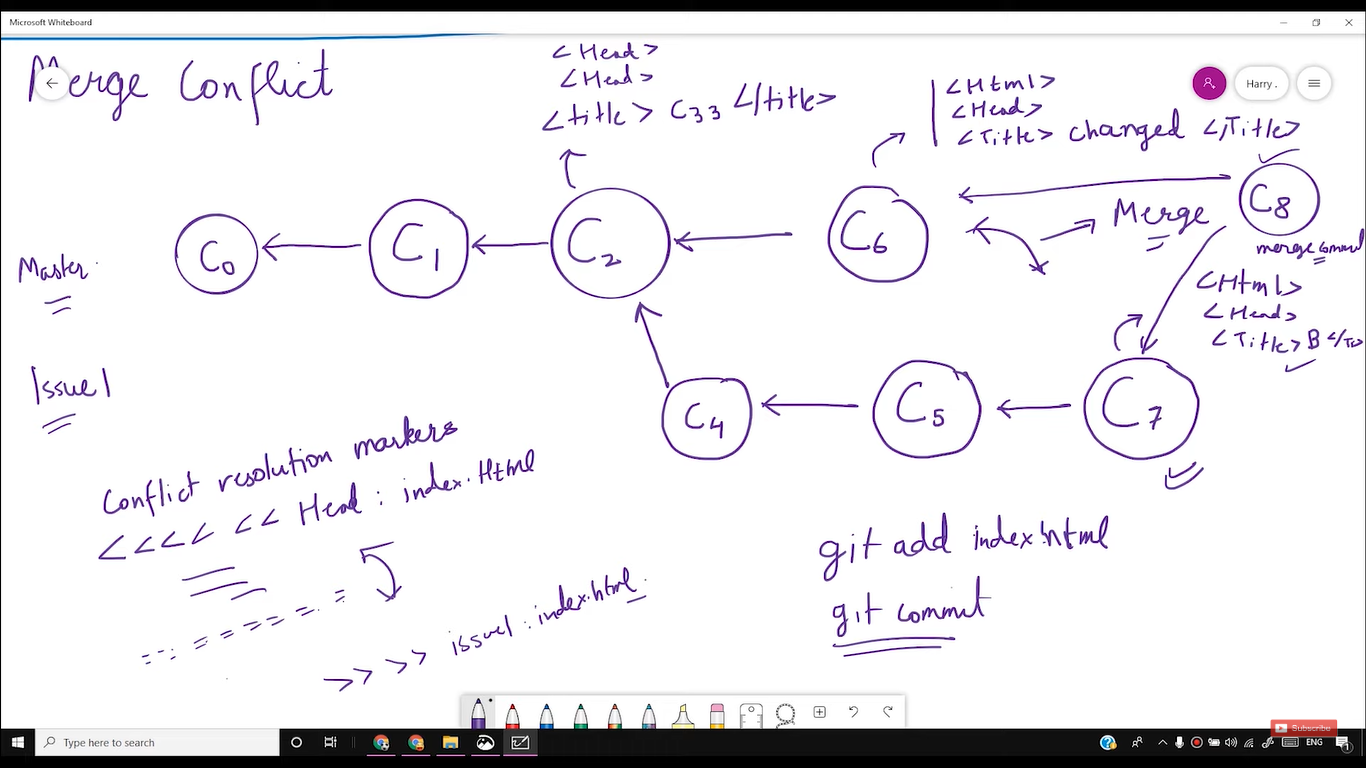 Microsoft Whiteboard
Merge Conflict
<Head>
<Head>
<title> C33 </title>
<Html>
<Head>
<Title> changed </Title>
Harry .
Master
C0
C1
C2
C6
Merge
C8
merge commit
<Html>
<Head>
<Title> B </Ti>
Issue1
C4
C5
C7
Conflict resolution markers
<<<< << Head : index.Html
= = = = = = =
>>>> issue1 : index.html
git add index.html
git commit
Subscribe
Type here to search
ENG
1